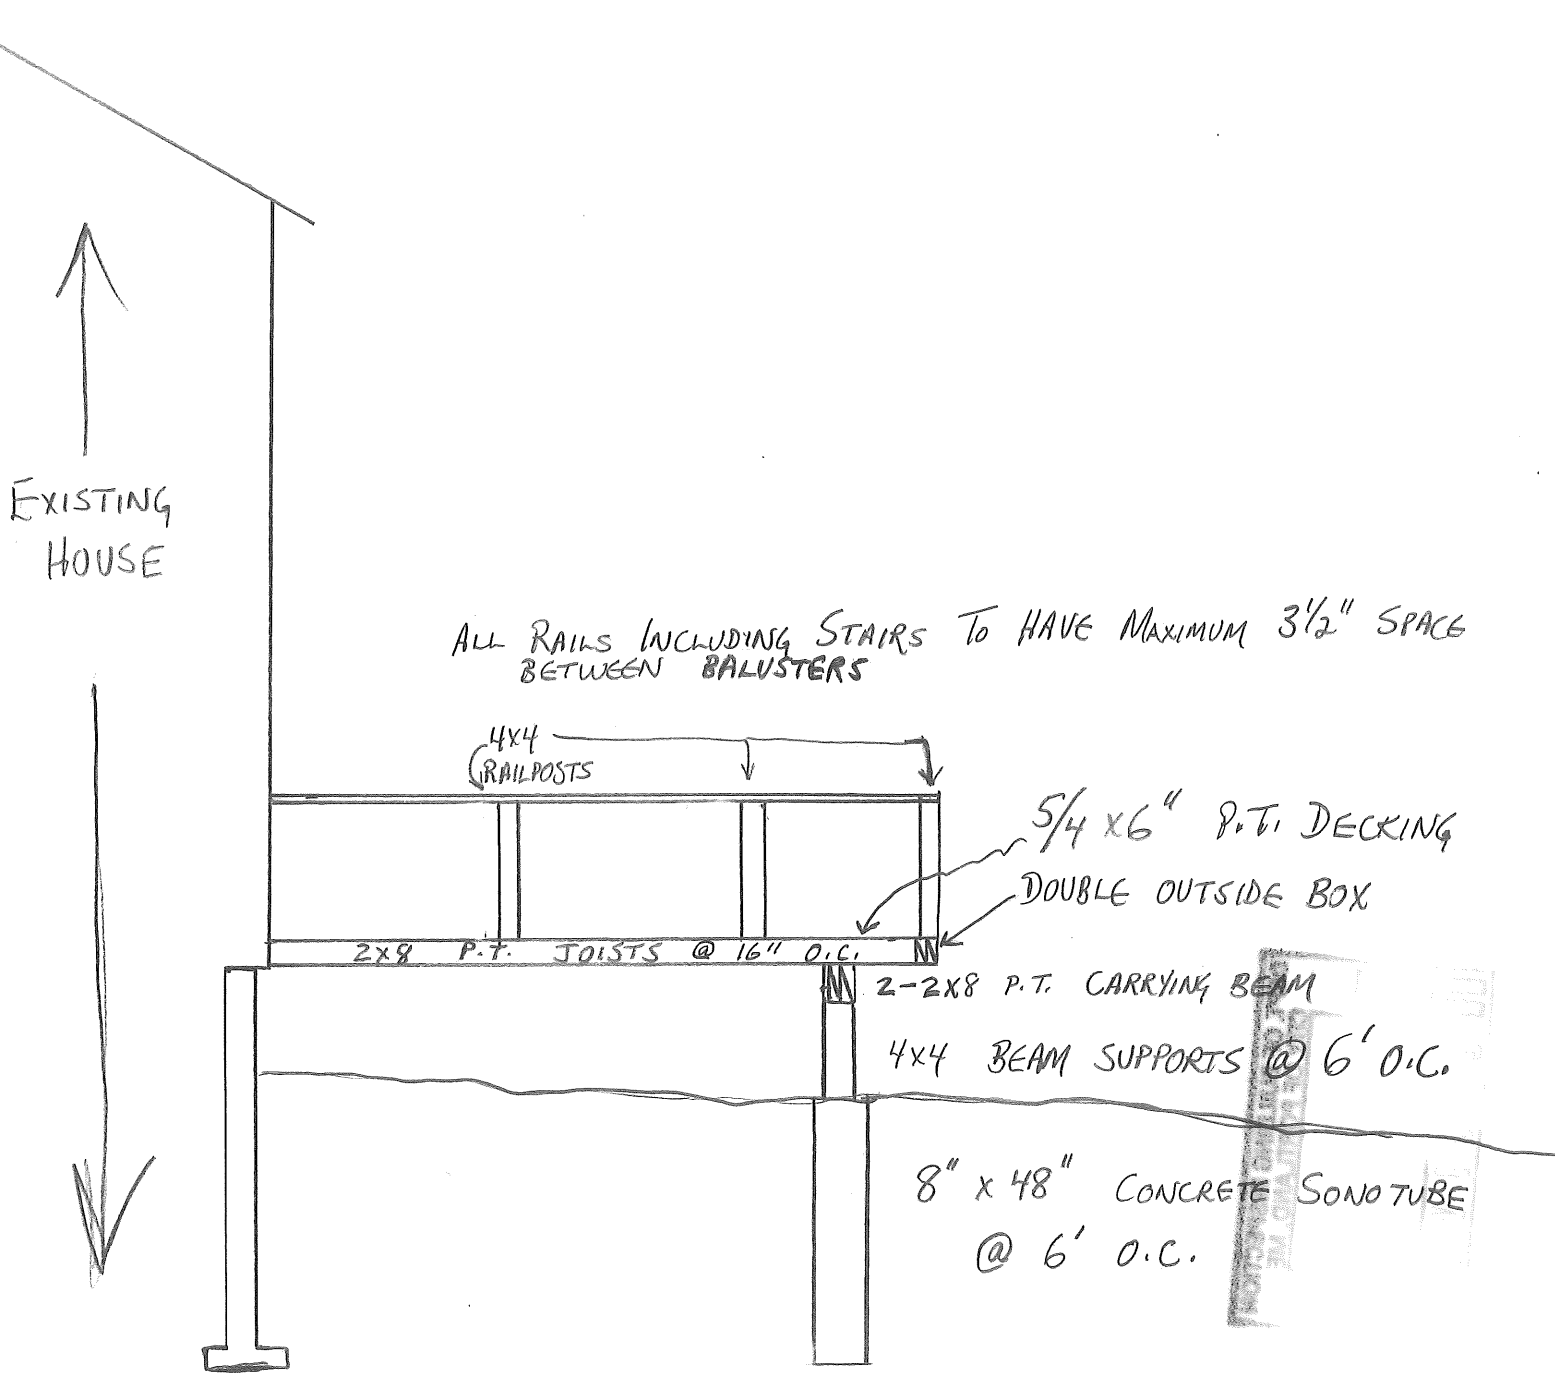 EXISTING
HOUSE
ALL RAILS INCLUDING STAIRS TO HAVE MAXIMUM 3½" SPACE
BETWEEN BALUSTERS
4x4
RAILPOSTS
5/4 x6" P.T. DECKING
DOUBLE OUTSIDE BOX
2x8 P.T. JOISTS @ 16" O.C.
2-2x8 P.T. CARRYING BEAM
4x4 BEAM SUPPORTS @ 6' O.C.
8" x 48" CONCRETE SONOTUBE
@ 6' O.C.